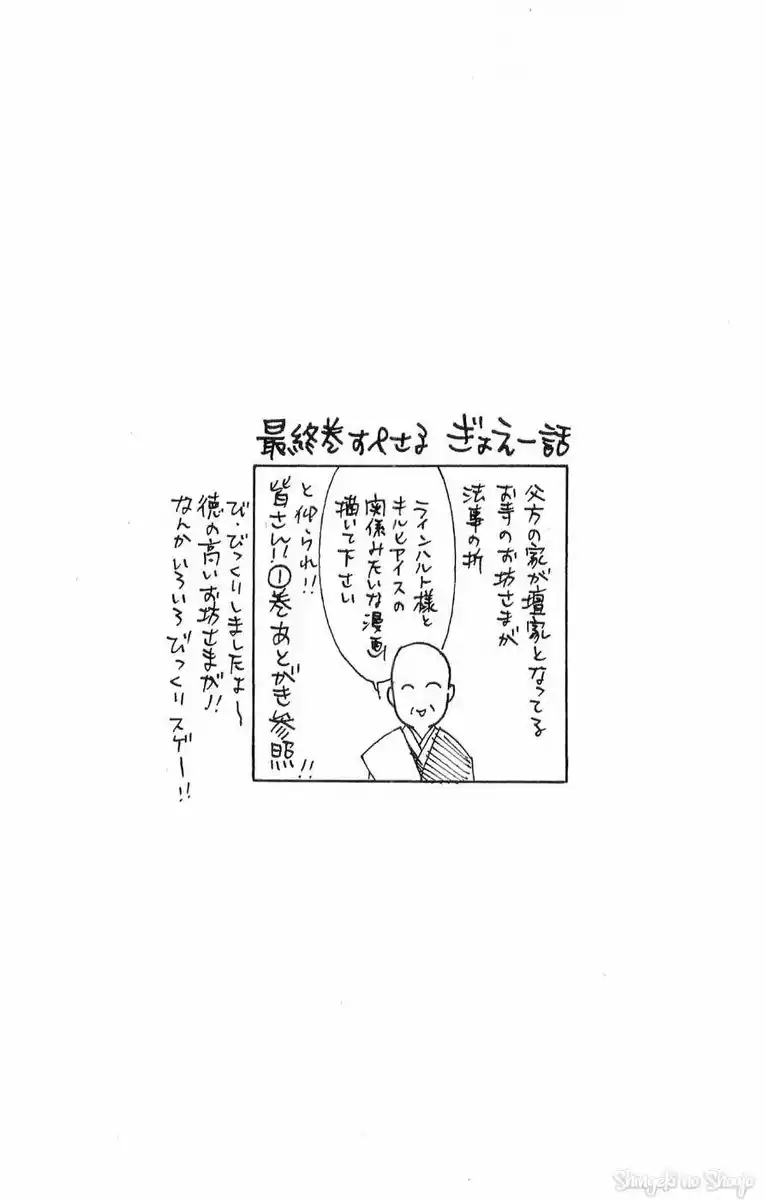 最終巻すぺさる ぎょえー話
父方の家が壇家となってる
お寺のお坊さまが
法事の折
ラインハルト様と
キルヒアイスの
関係みたいな漫画
描いて下さい
と仰られ!!
皆さん!!①巻あとがき参照!!
び・びっくりしましたよ〜
徳の高いお坊さまが!!
なんかいろいろびっくりスゲー!!
Shingeki no Shoujo